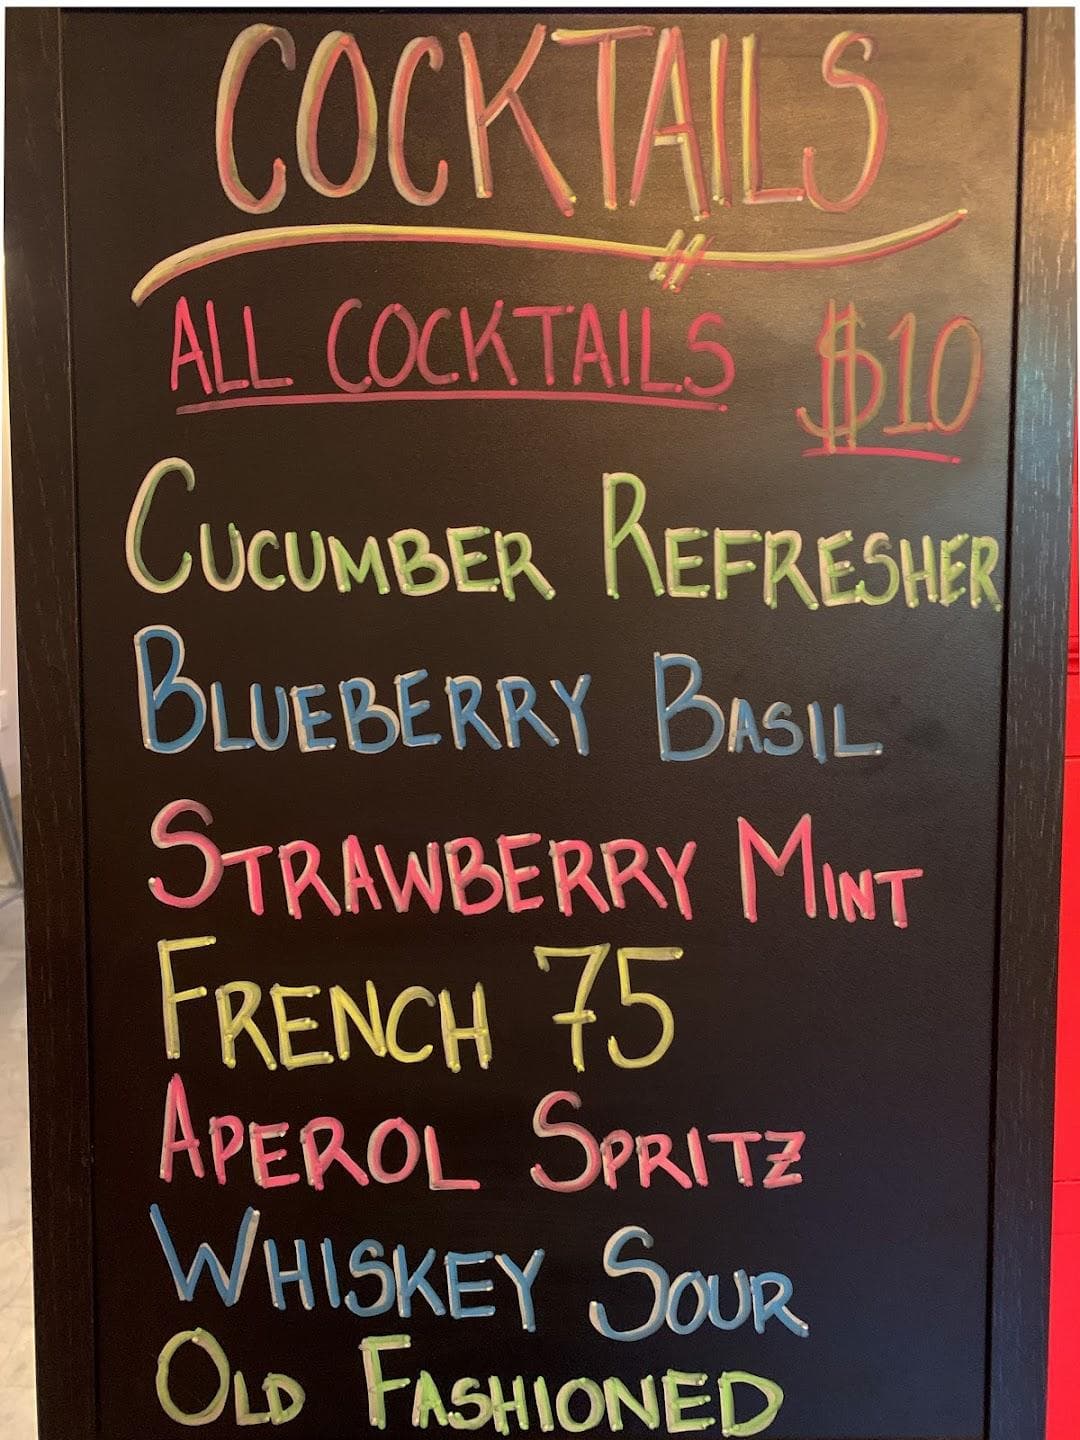 COCKTAILS
ALL COCKTAILS $10
CUCUMBER REFRESHER
BLUEBERRY BASIL
STRAWBERRY MINT
FRENCH 75
APEROL SPRITZ
WHISKEY SOUR
OLD FASHIONED